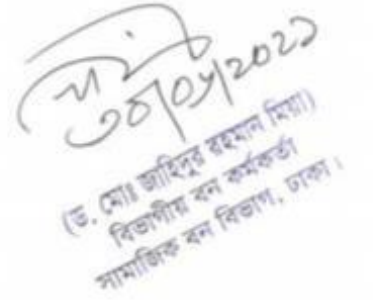 ৩০/০৫/২০২১
(ড. মোঃ জাহিদুর রহমান মিয়া)
বিভাগীয় বন কর্মকর্তা
সামাজিক বন বিভাগ, ঢাকা।